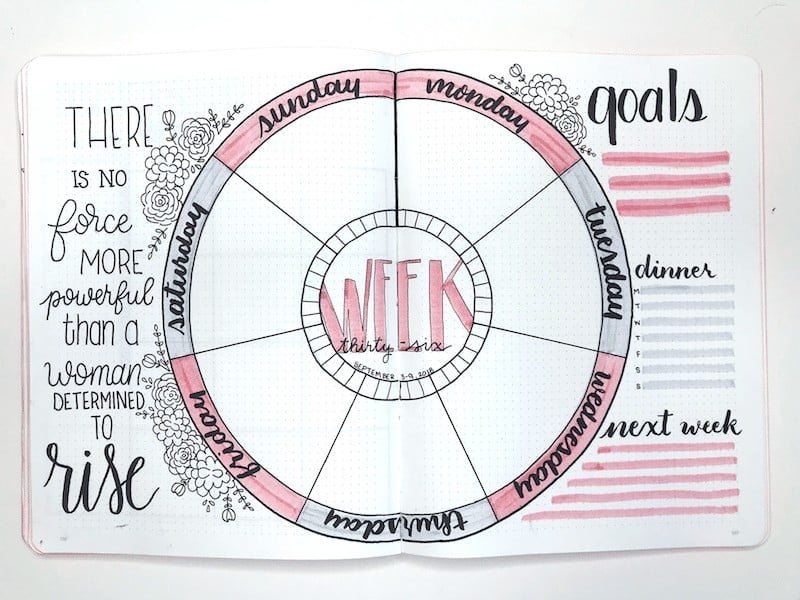 THERE
IS NO
force
MORE
powerful
than a
woman
DETERMINED
TO
rise
sunday
monday
tuesday
wednesday
thursday
friday
saturday
WEEK
thirty-six
SEPTEMBER 3-9, 2018
goals
dinner
M
T
W
T
F
S
S
next week